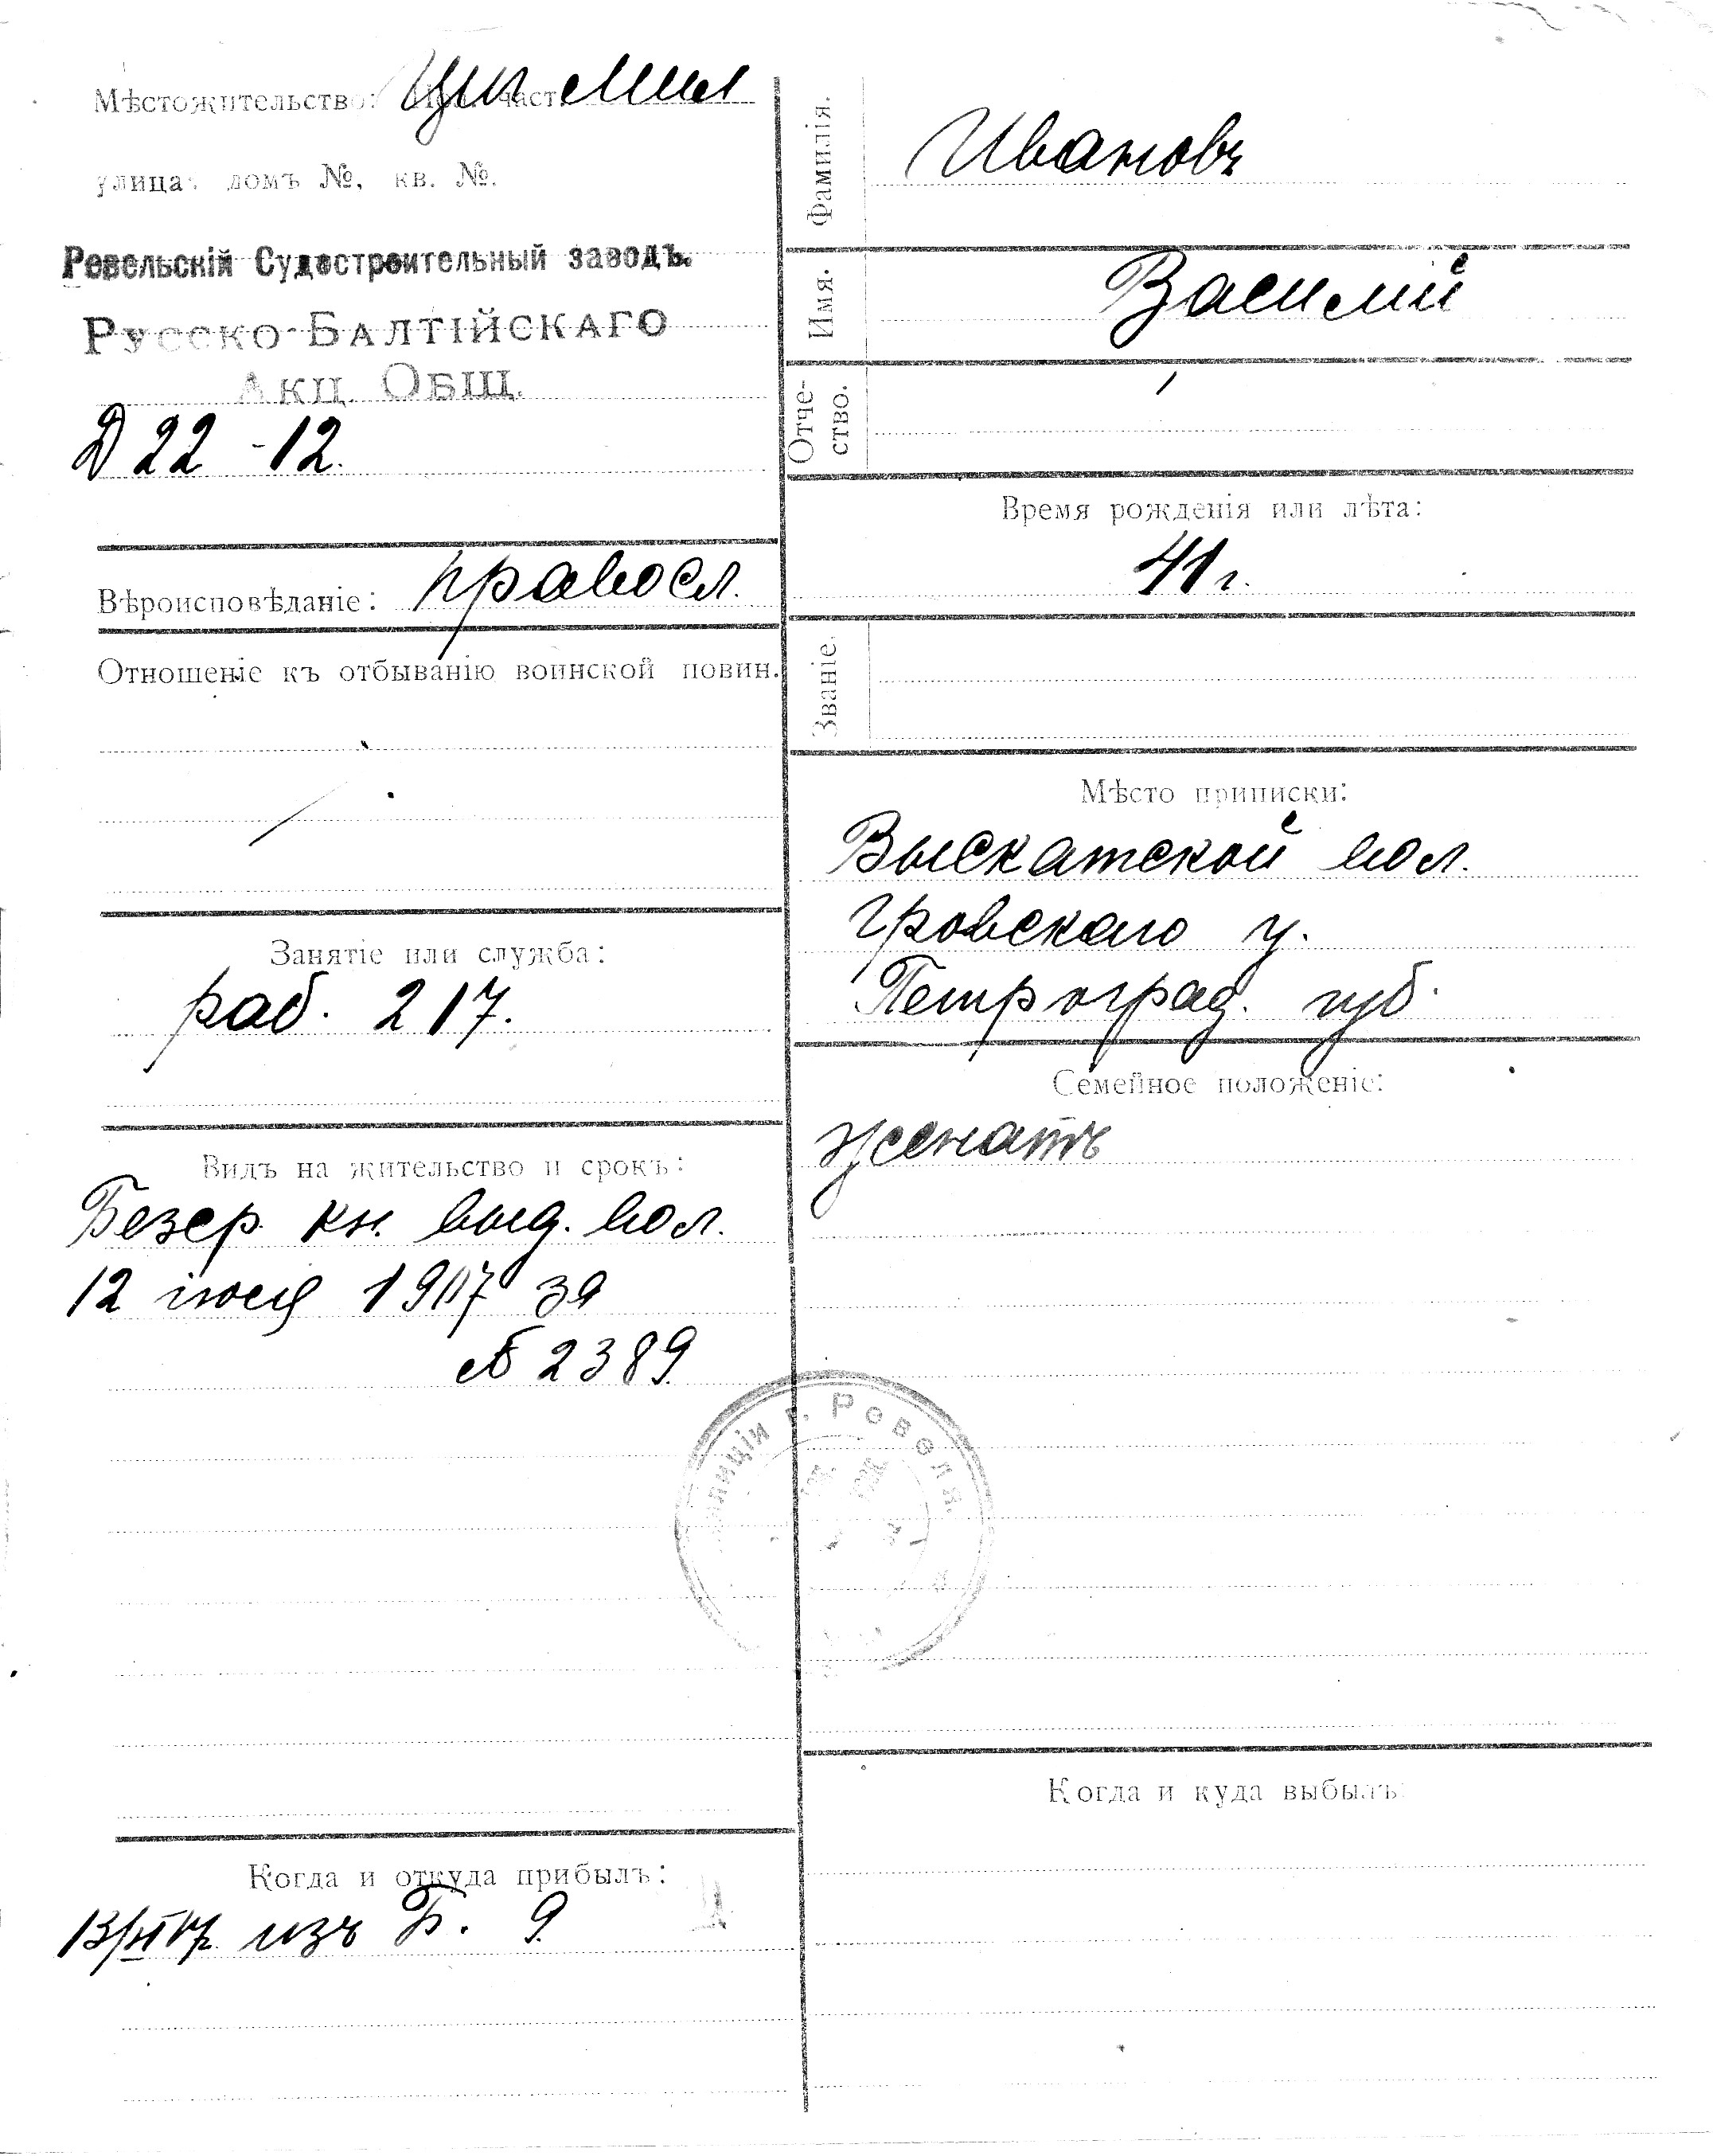 Мѣстожительство: част.
Циглин
улица: домъ №, кв. №.
Ревельскій Судостроительный заводъ.
Русско-Балтійскаго
Акц. Общ.
Д 22 - 12.
Вѣроисповѣданіе: правосл.
Отношеніе къ отбыванію воинской повин.
Занятіе или служба:
раб. 217.
Видъ на жительство и срокъ:
Безср. кн. выд. вол.
12 1907 за
№ 2389
Когда и откуда прибылъ:
изъ Б. 9
Фамилія. Ивановъ
Имя. Василий
Отче-
ство.
Время рожденія или лѣта:
41 г.
Званіе.
Мѣсто приписки:
Выскатской вол.
Гдовскаго у.
Петроград. губ.
Семейное положеніе:
женатъ
полиціи г. Ревеля.
Когда и куда выбылъ: